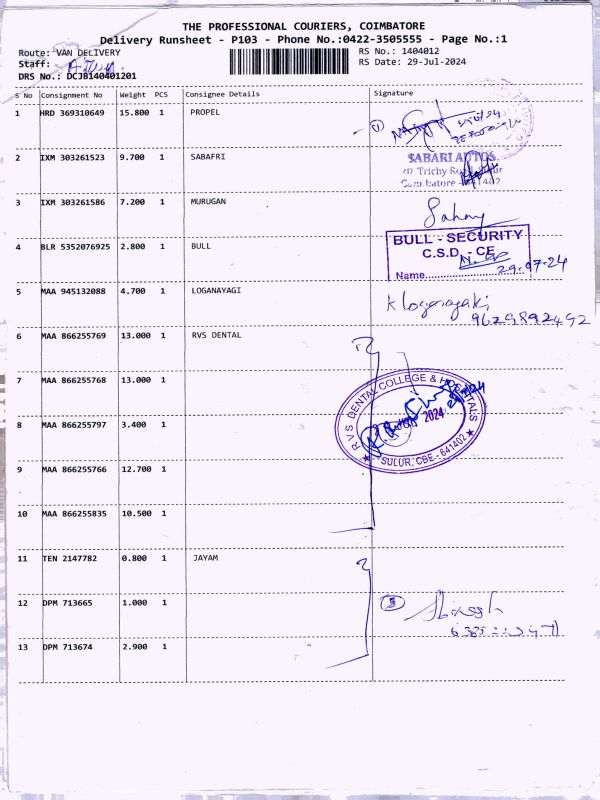 THE PROFESSIONAL COURIERS, COIMBATORE
Delivery Runsheet - P103 - Phone No.:0422-3505555 - Page No.:1
Route: VAN DELIVERY RS No.: 1404012
Staff: RS Date: 29-Jul-2024
DRS No.: DCJB140401201
S No Consignment No Weight PCS Consignee Details Signature
1 HRD 369310649 15.800 1 PROPEL
2 IXM 303261523 9.700 1 SABAFRI
SABARI AUTOS
Trichy Road, Sulur
Coimbatore
3 IXM 303261586 7.200 1 MURUGAN
4 BLR 5352076925 2.800 1 BULL
BULL - SECURITY
C.S.D. - CE
Name.................... 29-07-24
5 MAA 945132088 4.700 1 LOGANAYAGI
K Loganayaki
9629892492
6 MAA 866255769 13.000 1 RVS DENTAL
7 MAA 866255768 13.000 1
8 MAA 866255797 3.400 1
RVS DENTAL COLLEGE & HOSPITALS
2024
SULUR, CBE - 641402
9 MAA 866255766 12.700 1
10 MAA 866255835 10.500 1
11 TEN 2147782 0.800 1 JAYAM
12 DPM 713665 1.000 1
3
13 DPM 713674 2.900 1